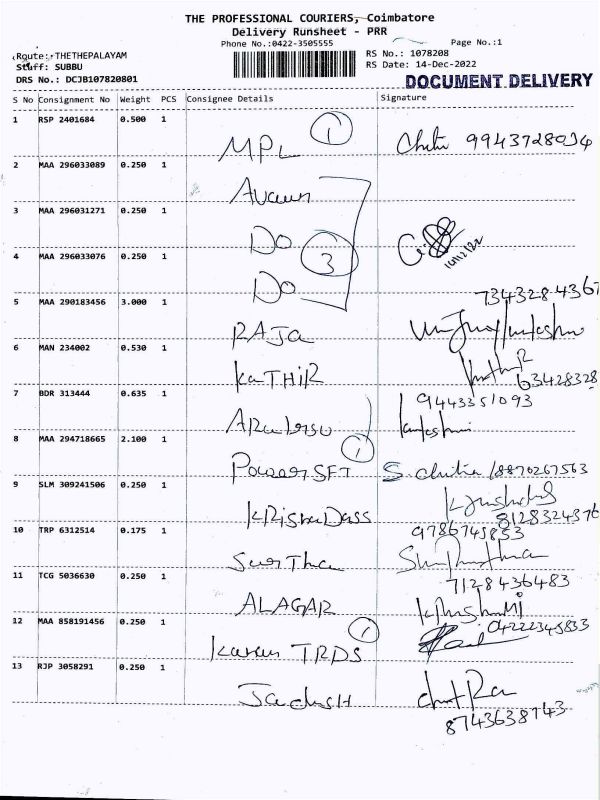 THE PROFESSIONAL COURIERS, Coimbatore
Delivery Runsheet - PRR
Phone No.:0422-3505555 Page No.:1
Route: THETHEPALAYAM RS No.: 1078208
Staff: SUBBU RS Date: 14-Dec-2022
DRS No.: DCJB107820801 DOCUMENT DELIVERY
S No Consignment No Weight PCS Consignee Details Signature
1 RSP 2401684 0.500 1
MPL 1 9943728094
2 MAA 296033089 0.250 1
3 MAA 296031271 0.250 1
DO
3
4 MAA 296033076 0.250 1
DO
5 MAA 290183456 3.000 1 7343284367
RAJa
6 MAN 234002 0.530 1
KaTHIR 63428328
7 BDR 313444 0.635 1 9443351093
8 MAA 294718665 2.100 1 1
Power SFT S. chitra /8870267563
9 SLM 309241506 0.250 1
KRishnaDass 8128324376
10 TRP 6312514 0.175 1 9786745833
11 TCG 5036630 0.250 1 7128436483
ALAGAR
12 MAA 858191456 0.250 1 04222345833
1
TRDS
13 RJP 3058291 0.250 1
8743638143